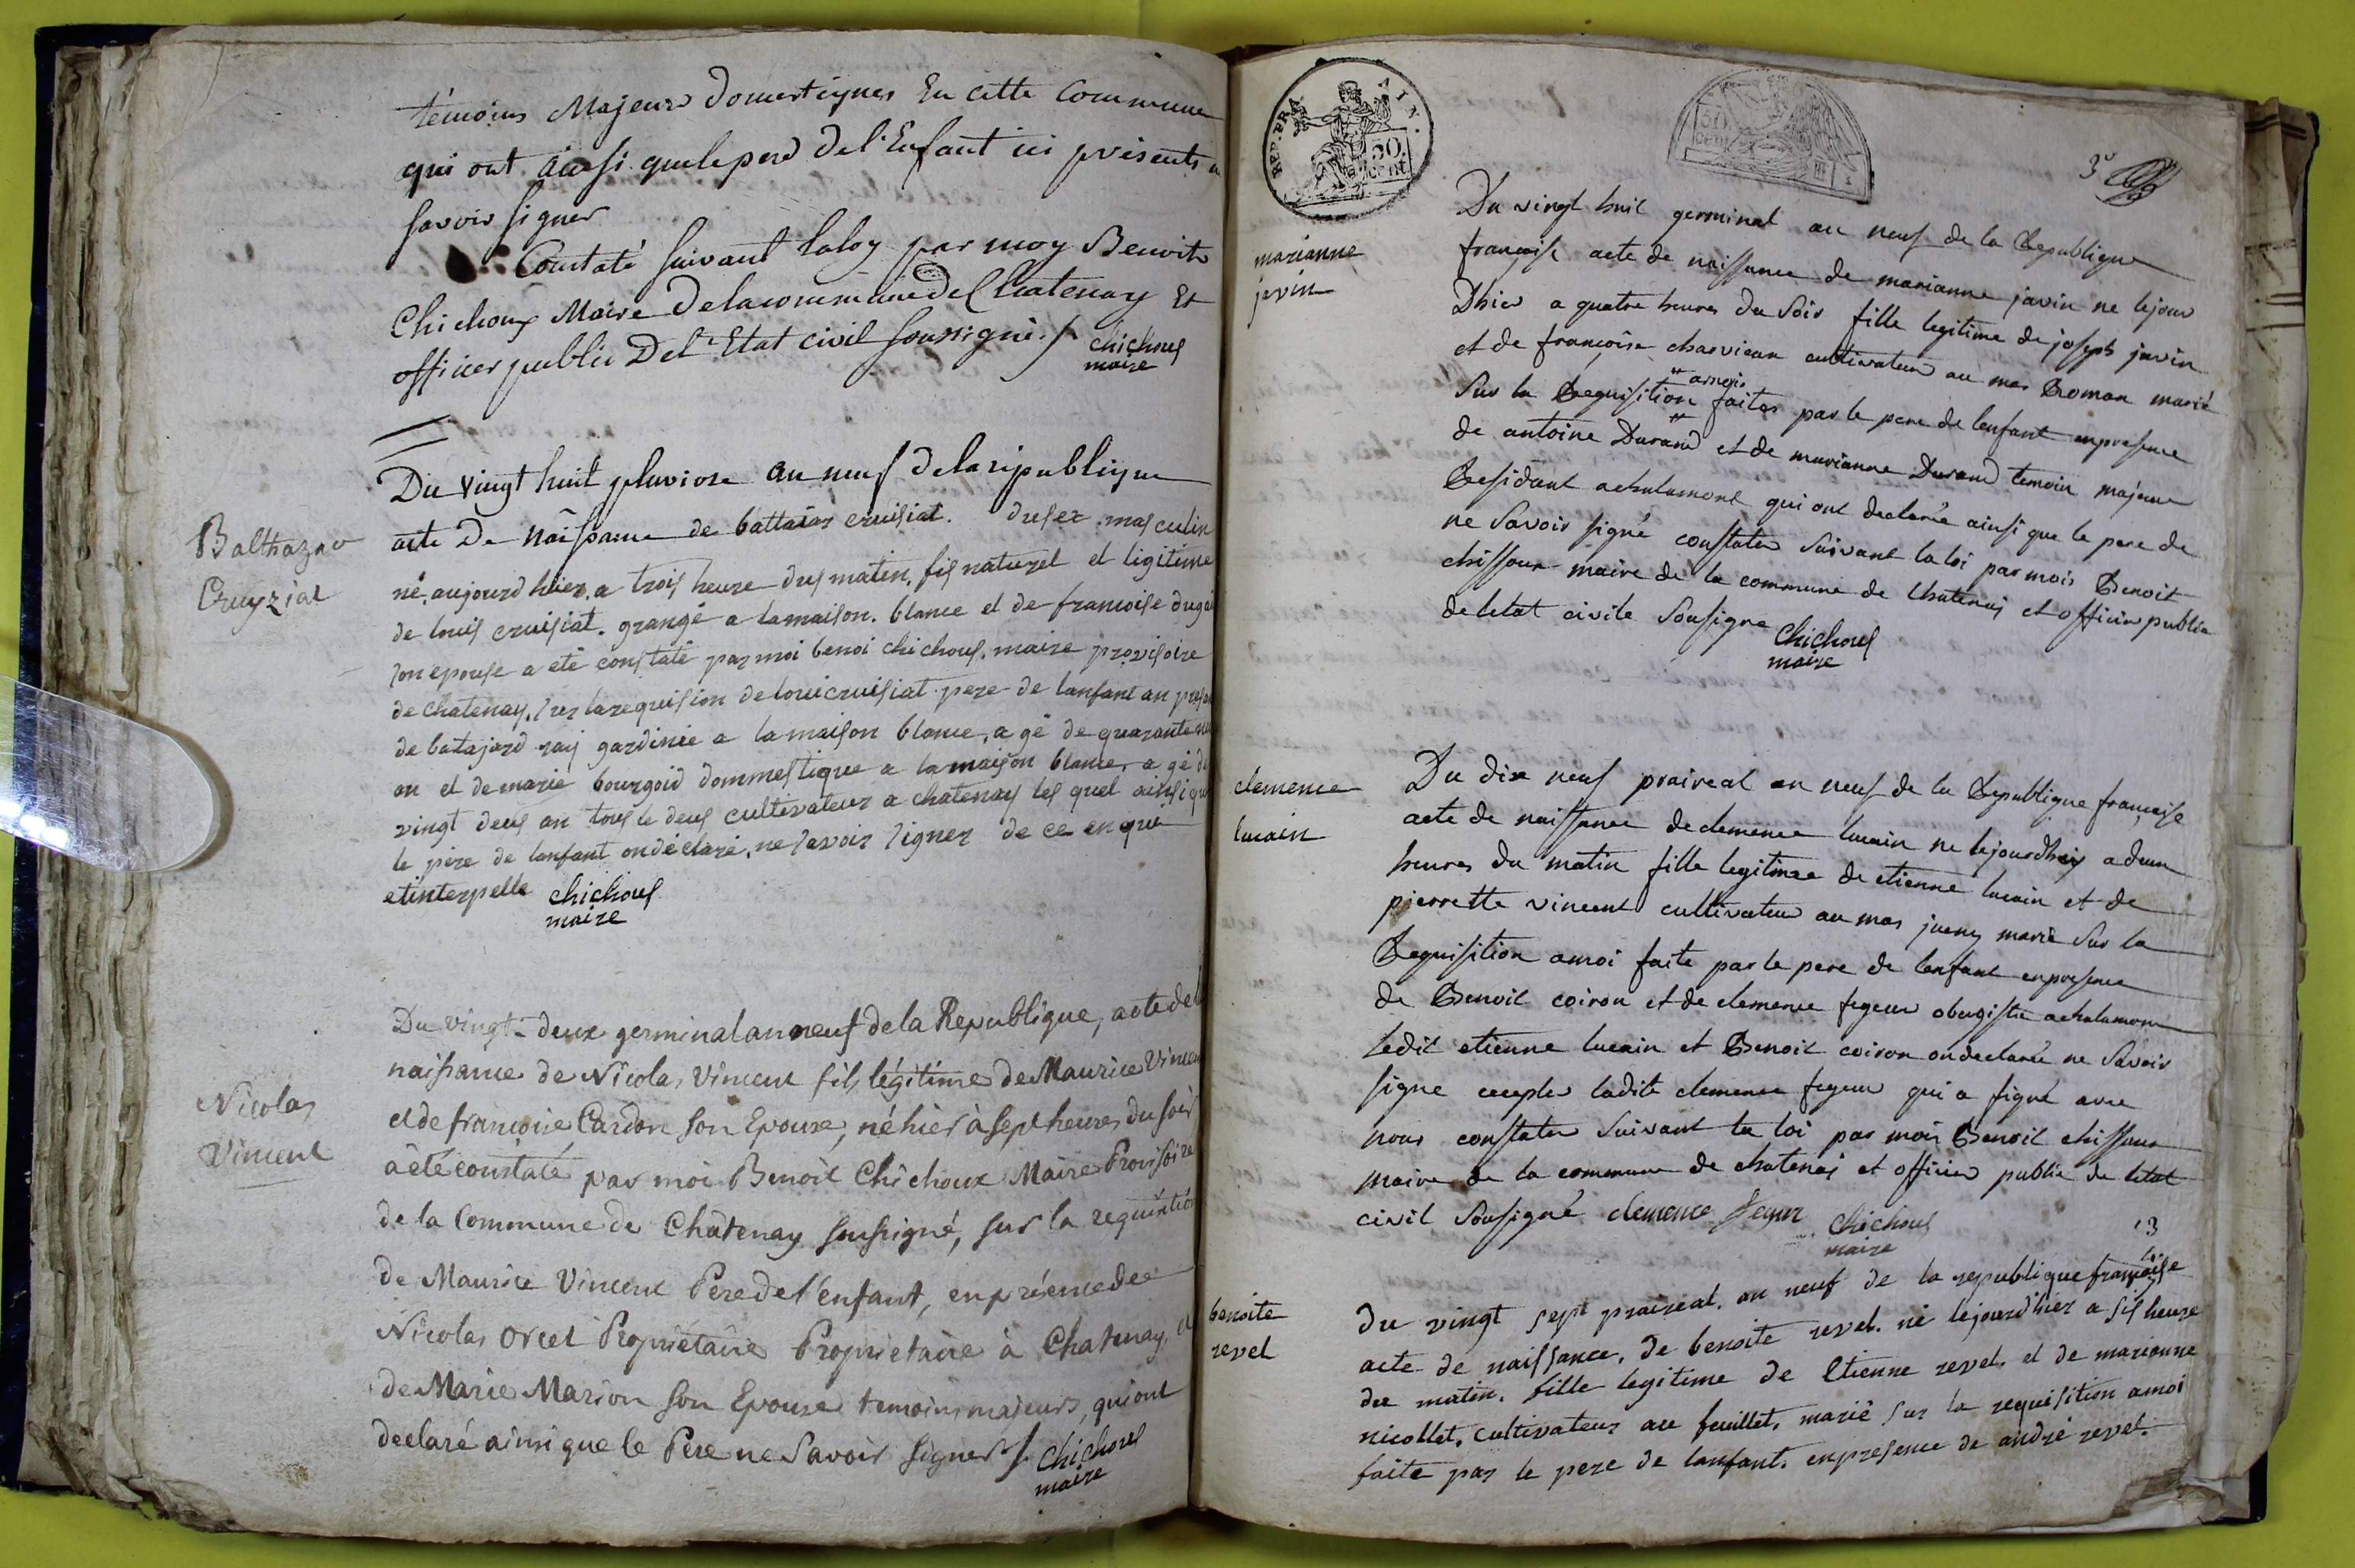 témoins Majeurs domestiques En cette Commune
qui ont ainsi quele pere del'Enfant ici présents
savoir signer
Constaté suivant laloy par moy Benoit
Chichoux Maire delacommune de Chatenay Et
officier public Del'Etat civil soussigné ./ chichous
maire
Balthazar
Cruyziat
Du vingt huit pluviose an neuf delarépublique
acte De naissance de battazar cruisiat. dusex masculin
né aujourdhier a trois heure dus matin, fis naturel et ligitime
de louis cruisiat. grangé a lamaison. blance et de francoise
son epouse a eté constaté par moi benoi chichous. maire provisoire
de chatenay. sur larequision delouicruisiat pere de lanfant an
de batajard rais gardinié a la maison blance, a gé de quarante
an et demarie bourgoid dommestique a lamaison blance, a gé
vingt deus an tous le deus cultivateur a chatenay les quel ainsi que
le père de lanfant ondéclaré, ne savoir signer de ce enque
etinterpelle chichous
maire
Nicolas
Vincent
Du vingt-deux germinal an neuf de la Republique, acte de
naissance de Nicolas Vincent fils légitime de Maurice Vincent
et de francoise Cardon son Epouse, né hier à sept heures du soir
a été constaté par moi Benoit Chichoux Maire Provisoire
de la Commune de Chatenay soussigné, sur la requisition
de Maurice Vincent Pere de l'enfant, en présence de
Nicolas Orcel Propriétaire Proprietaire à Chatenay, et
de Marie Marion son Epouse temoins majeurs, qui ont
declaré ainsi que le Pere ne Savoir signer ./. Chichous
maire
REP. FRA. AIN.
50 CENT
50 CENT
3e
marianne
javin
Du vingt huit germinal an neuf de la Republique
françoise acte de naissance de marianne javin ne lejour
Dhier a quatre heures du soir fille legitime de joseph javin
et de françoise charvieux cultivateur au mas Roman marié
amoi
sur la Requisition faites par le pere de lenfant enpresence
de antoine Durand et de marianne Durand temoin majeur
Residant achalamont qui ont declarée ainsi que le pere de
ne savoir signé constater suivant la loi par mois Benoit
chissoux maire de la commune de chatenay et officier public
de letat civile sousigne Chichous
maire
clemence
lucain
Du dix neuf praireal an neuf de la Republique françoise
acte de naissance de clemence lucain ne lejourdhier adeux
heures du matin fille legitime de etienne lucain et de
pierrette vincent cultivateur au mas marié sur la
Requisition amoi faite par le pere de lenfant enpresence
de Benoit coiron et de clemence feyeux achalamon
ledit etienne lucain et Benoit coiron ondeclarée ne savoir
signe excepter ladite clemence feyeux qui a signé avec
nous constater suivant la loi par mois Benoit chissoux
maire de la commune de chatenay et officier public de letat
civil sousigné clemence feyeux Chichous
maire
13
benoite
revel
Du vingt sept praireal. an neuf de la republique française
acte de naissance. de benoite revel. né lejourdhier a sis heure
du matin. fille legitime de Etienne revel. et de marianne
nicollet. cultivateur au feuillet, marié sur la requisition amoi
faite par le pere de lanfant. enpresence de andré revel.